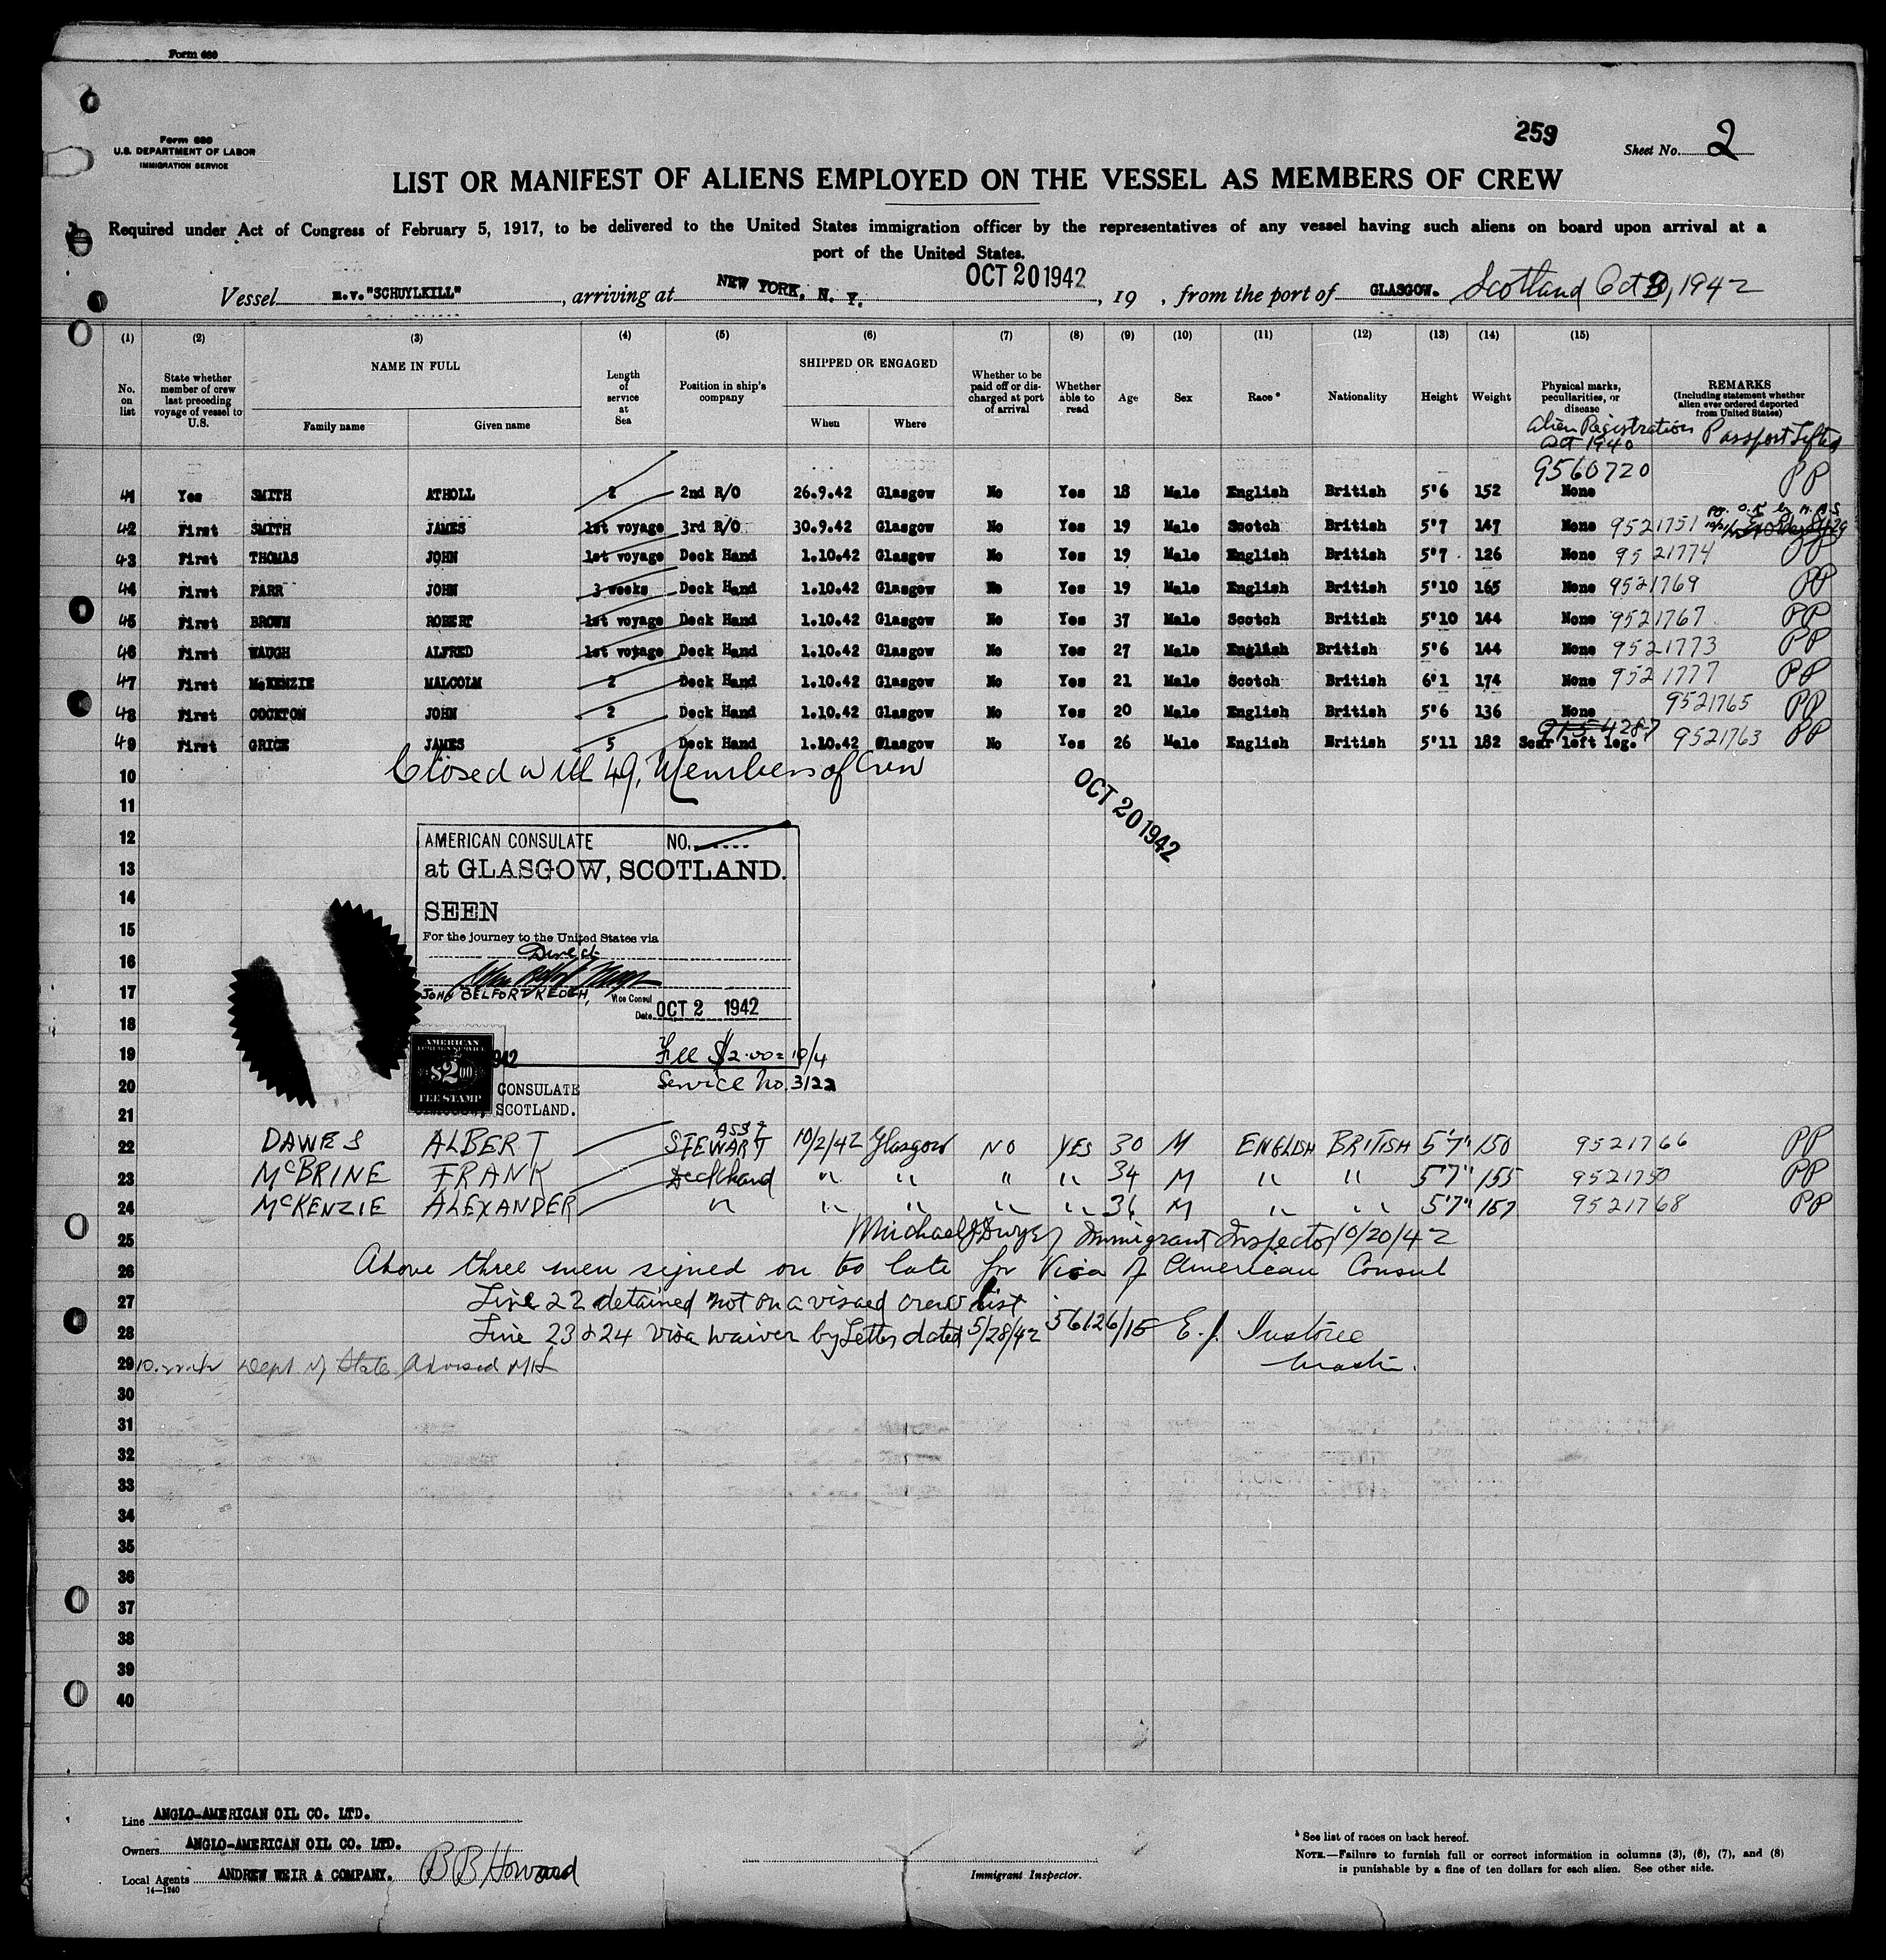 Form 680
Form 680
U.S. DEPARTMENT OF LABOR
IMMIGRATION SERVICE
259
Sheet No. 2
LIST OR MANIFEST OF ALIENS EMPLOYED ON THE VESSEL AS MEMBERS OF CREW
Required under Act of Congress of February 5, 1917, to be delivered to the United States immigration officer by the representatives of any vessel having such aliens on board upon arrival at a
port of the United States.
Vessel m.v. "SCHUYLKILL", arriving at NEW YORK, N. Y. OCT 20 1942, 19 , from the port of GLASGOW. Scotland Oct 3, 1942
(1) (2) (3) (4) (5) (6) (7) (8) (9) (10) (11) (12) (13) (14) (15)
No. on list
State whether member of crew last preceding voyage of vessel to U.S.
NAME IN FULL
Family name
Given name
Length of service at Sea
Position in ship's company
SHIPPED OR ENGAGED
When
Where
Whether to be paid off or discharged at port of arrival
Whether able to read
Age
Sex
Race *
Nationality
Height
Weight
Physical marks, peculiarities, or disease
REMARKS
(Including statement whether alien ever ordered deported from United States)
Alien Registration Act 1940
Passport Lifted
9560720
41 Yes SMITH ATHOLL 2 2nd R/O 26.9.42 Glasgow No Yes 18 Male English British 5'6 152 None PP
42 First SMITH JAMES 1st voyage 3rd R/O 30.9.42 Glasgow No Yes 19 Male Scotch British 5'7 147 None 9521751
43 First THOMAS JOHN 1st voyage Deck Hand 1.10.42 Glasgow No Yes 19 Male English British 5'7 126 None 9521774 PP
44 First PARR JOHN 3 weeks Deck Hand 1.10.42 Glasgow No Yes 19 Male English British 5'10 165 None 9521769 PP
45 First BROWN ROBERT 1st voyage Deck Hand 1.10.42 Glasgow No Yes 37 Male Scotch British 5'10 144 None 9521767 PP
46 First WAUGH ALFRED 1st voyage Deck Hand 1.10.42 Glasgow No Yes 27 Male English British 5'6 144 None 9521773 PP
47 First McKENZIE MALCOLM 2 Deck Hand 1.10.42 Glasgow No Yes 21 Male Scotch British 6'1 174 None 9521777 PP
48 First COCKTON JOHN 2 Deck Hand 1.10.42 Glasgow No Yes 20 Male English British 5'6 136 None 9521765 PP
49 First GRICE JAMES 5 Deck Hand 1.10.42 Glasgow No Yes 26 Male English British 5'11 182 Scar left leg. 9521763 PP
Closed with 49, Members of Crew
10
11
OCT 20 1942
12
13
14
15
16
17
18
19
20
21
AMERICAN CONSULATE NO.
at GLASGOW, SCOTLAND.
SEEN
For the journey to the United States via
Direct
JOHN BELFORT KEOGH, Vice Consul
Date OCT 2 1942
Fee $2.00 = 10/4
Service No. 3122
AMERICAN
FOREIGN SERVICE
$2.00
FEE STAMP
CONSULATE
SCOTLAND.
22 DAWES ALBERT ASST STEWART 10/2/42 Glasgow NO YES 30 M ENGLISH BRITISH 5'7" 150 9521766 PP
23 McBRINE FRANK Deckhand " " " " 34 M " " 5'7" 155 9521750 PP
24 McKENZIE ALEXANDER " " " " " 36 M " " 5'7" 157 9521768 PP
25 Michael J Dwyer Immigrant Inspector 10/20/42
26 Above three men signed on to late for Visa of American Consul
27 Line 22 detained not on a visaed crew list
28 Line 23 & 24 visa waiver by Letter dated 5/28/42 56126/15 E. J.
29 Dept of State Advised
30
31
32
33
34
35
36
37
38
39
40
Line ANGLO-AMERICAN OIL CO. LTD.
Owners ANGLO-AMERICAN OIL CO. LTD.
Local Agents ANDREW WEIR & COMPANY. B B Howard
14—1240
Immigrant Inspector.
* See list of races on back hereof.
NOTE.—Failure to furnish full or correct information in columns (3), (6), (7), and (8)
is punishable by a fine of ten dollars for each alien. See other side.